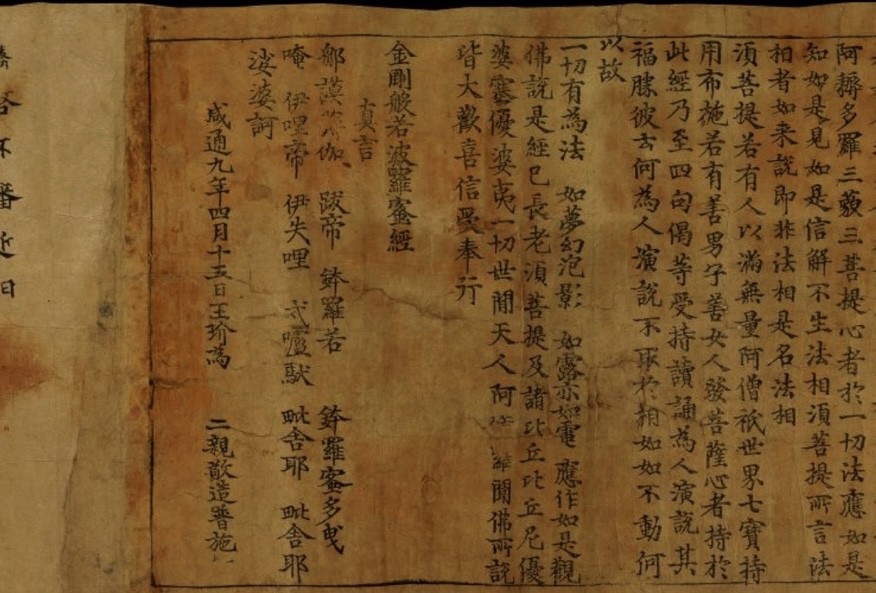 阿耨多羅三藐三菩提心者於一切法應如是
知如是見如是信解不生法相須菩提所言法
相者如来說即非法相是名法相
須菩提若有人以滿無量阿僧祇世界七寶持
用布施若有善男子善女人發菩薩心者持於
此經乃至四句偈等受持讀誦為人演說其
福勝彼云何為人演說不取於相如如不動何
以故
一切有為法 如夢幻泡影 如露亦如電 應作如是觀
佛說是經已長老須菩提及諸比丘比丘尼優
婆塞優婆夷一切世間天人阿 羅聞佛所說
皆大歡喜信受奉行
金剛般若波羅蜜經
真言
那謨 伽 跋帝 鉢羅若 鉢羅蜜多曳
唵 伊哩帝 伊失哩 戍嚧馱 毗舍耶 毗舍耶
娑婆訶
咸通九年四月十五日王玠為 二親敬造普施
不審近日